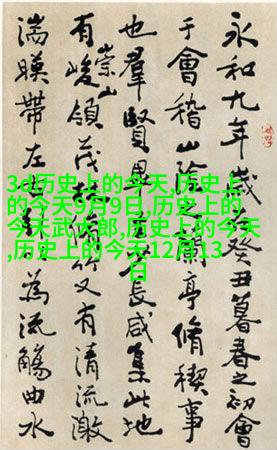 3d历史上的今天,历史上
的今天9月9日,历史上的
今天武大郎,历史上的今天
,历史上的今天12月13
日
永和九年歲在癸丑暮春之初會
于會稽山陰之蘭亭脩稧事
也羣賢畢長咸集此地
有崇山峻領茂林竹又有清流激
湍暎帶左為流觴曲水